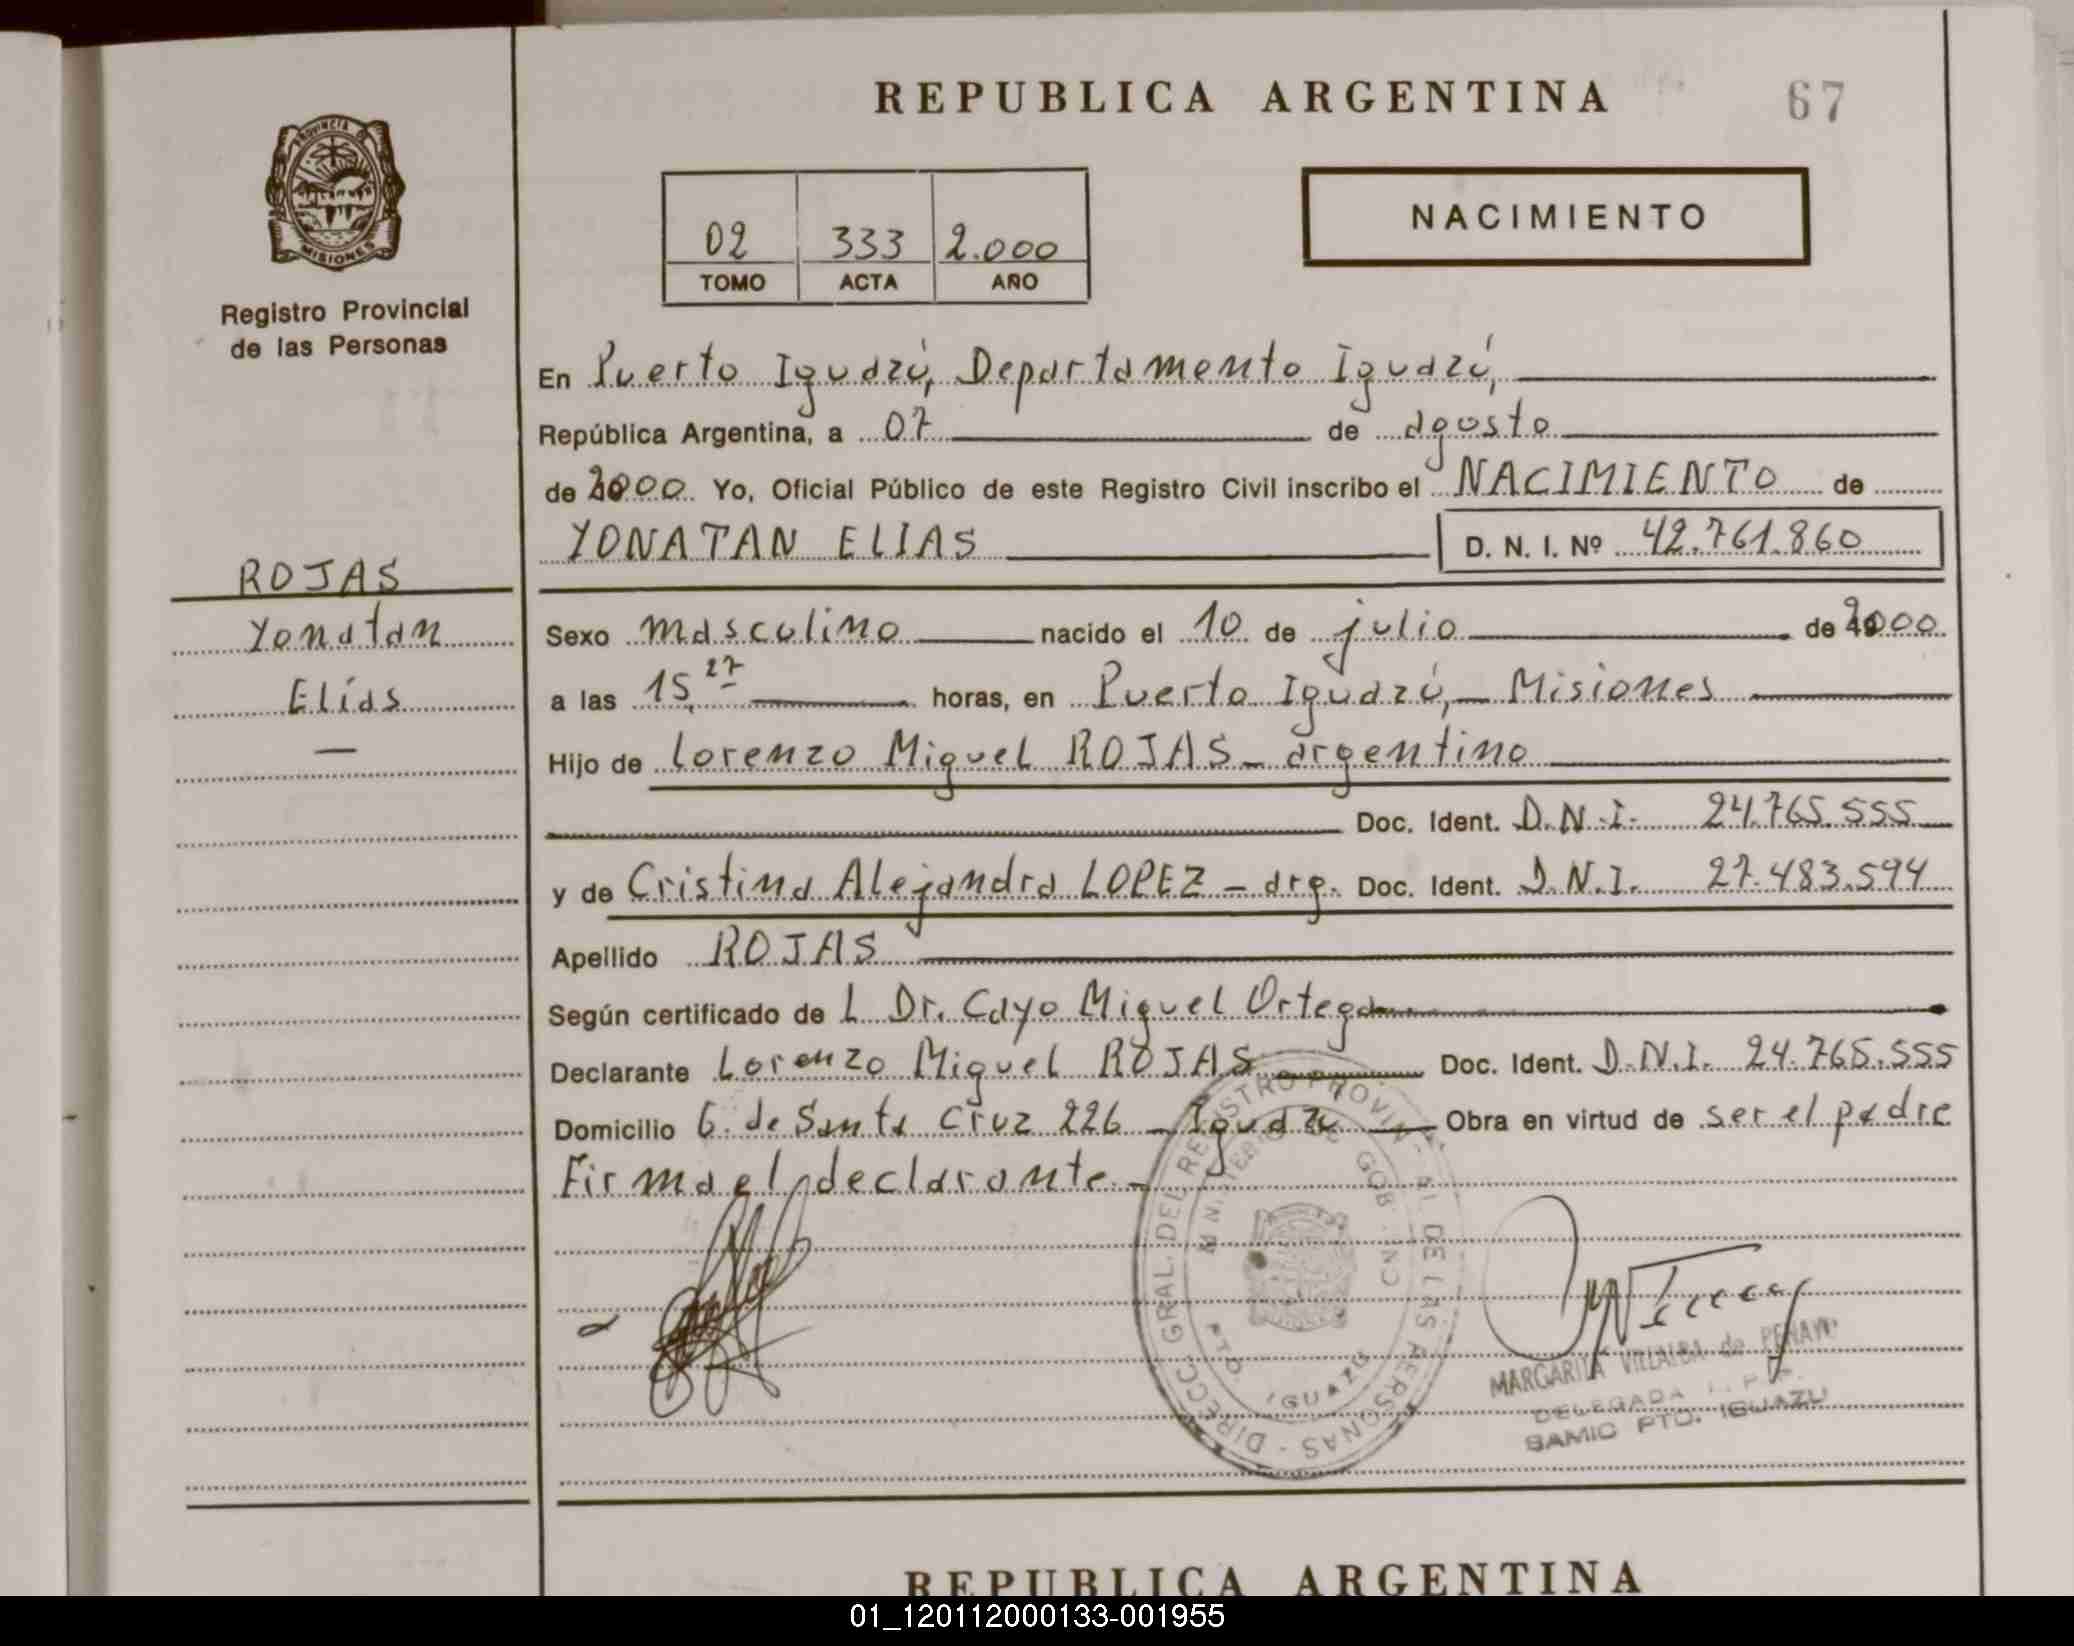 REPUBLICA ARGENTINA
67
PROVINCIA DE
MISIONES
Registro Provincial
de las Personas
02 333 2.000
TOMO ACTA AÑO
NACIMIENTO
En Puerto Iguazú, Departamento Iguazú,
República Argentina, a 07 de agosto
de 2000 Yo, Oficial Público de este Registro Civil inscribo el NACIMIENTO de
YONATAN ELIAS D. N. I. Nº 42.761.860
ROJAS
Yonatan
Elías
—
Sexo masculino nacido el 10 de julio de 2000
a las 15,27 horas, en Puerto Iguazú, - Misiones
Hijo de Lorenzo Miguel ROJAS - argentino
Doc. Ident. D.N.I. 24.765.555
y de Cristina Alejandra LOPEZ - arg. Doc. Ident. D.N.I. 27.483.594
Apellido ROJAS
Según certificado de L Dr. Cayo Miguel Ortega
Declarante Lorenzo Miguel ROJAS Doc. Ident. D.N.I. 24.765.555
Domicilio G. de Santa Cruz 226 - Iguazú Obra en virtud de ser el padre
Firma el declarante -
DIRECC. GRAL. DEL REGISTRO PROVINCIAL DE LAS PERSONAS
MINISTERIO DE GOB.
PTO. IGUAZU
MARGARITA VILLALBA de
DELEGADA
SAMIC PTO. IGUAZU
REPUBLICA ARGENTINA
01_120112000133-001955